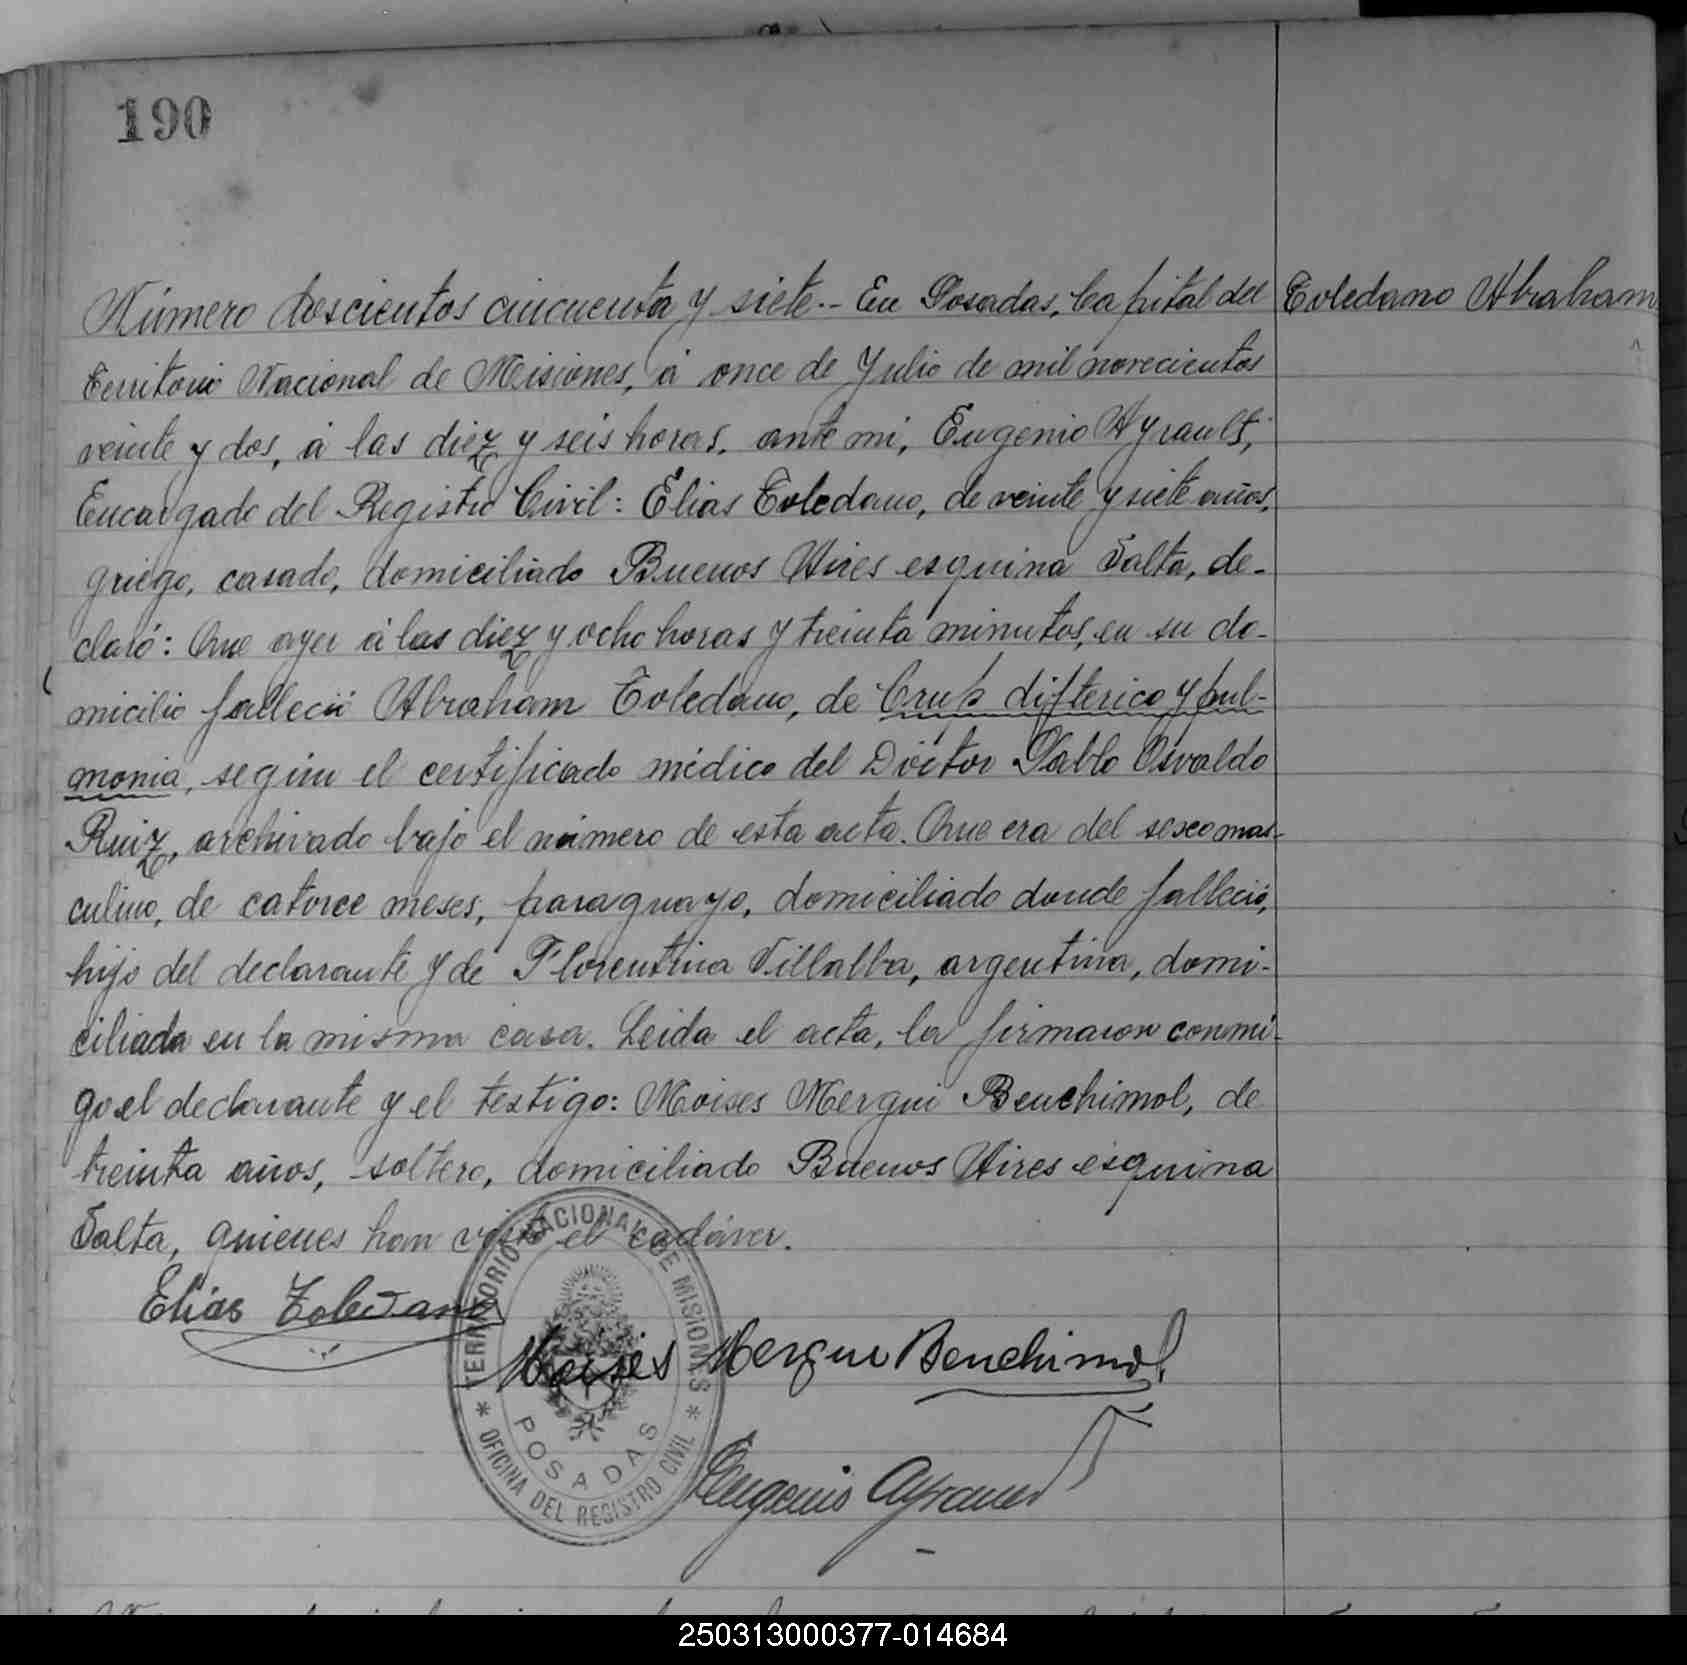 190
Número doscientos cincuenta y siete.- En Posadas, Capital del
Toledano Abraham
Territorio Nacional de Misiones, á once de Julio de mil novecientos
veinte y dos, á las diez y seis horas, ante mi, Eugenio Ayrault,
Encargado del Registro Civil: Elias Toledano, de veinte y siete años,
griego, casado, domiciliado Buenos Aires esquina Salta, de-
claró: Que ayer á las diez y ocho horas y treinta minutos, en su do-
micilio falleció Abraham Toledano, de Crup difterico y pul-
monia, según el certificado médico del Doctor Pablo Osvaldo
Ruiz, archivado bajo el número de esta acta. Que era del sexo mas-
culino, de catorce meses, paraguayo, domiciliado donde falleció,
hijo del declarante y de Florentina Villalba, argentina, domi-
ciliada en la misma casa. Leida el acta, la firmaron conmi-
go el declarante y el testigo: Moises Mergui Benchimol, de
treinta años, soltero, domiciliado Buenos Aires esquina
Salta, quienes han visto el cadáver.
Elias Toledano
Moisés Mergui Benchimol
Eugenio Ayrault
TERRITORIO NACIONAL DE MISIONES
POSADAS
* OFICINA DEL REGISTRO CIVIL *
250313000377-014684